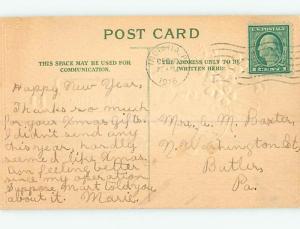 POST CARD
THIS SPACE MAY BE USED FOR
COMMUNICATION.
THE ADDRESS ONLY TO BE
WRITTEN HERE
1916
Happy New Year,
Thanks so much
for your Xmas gifts.
I didn't send any
this year, hardly
seemed like Xmas.
Am feeling better
since my operation
Suppose Mart told you
about it. Marie.
Mrs. C. M. Baxter,
N. Washington St,
Butler,
Pa.